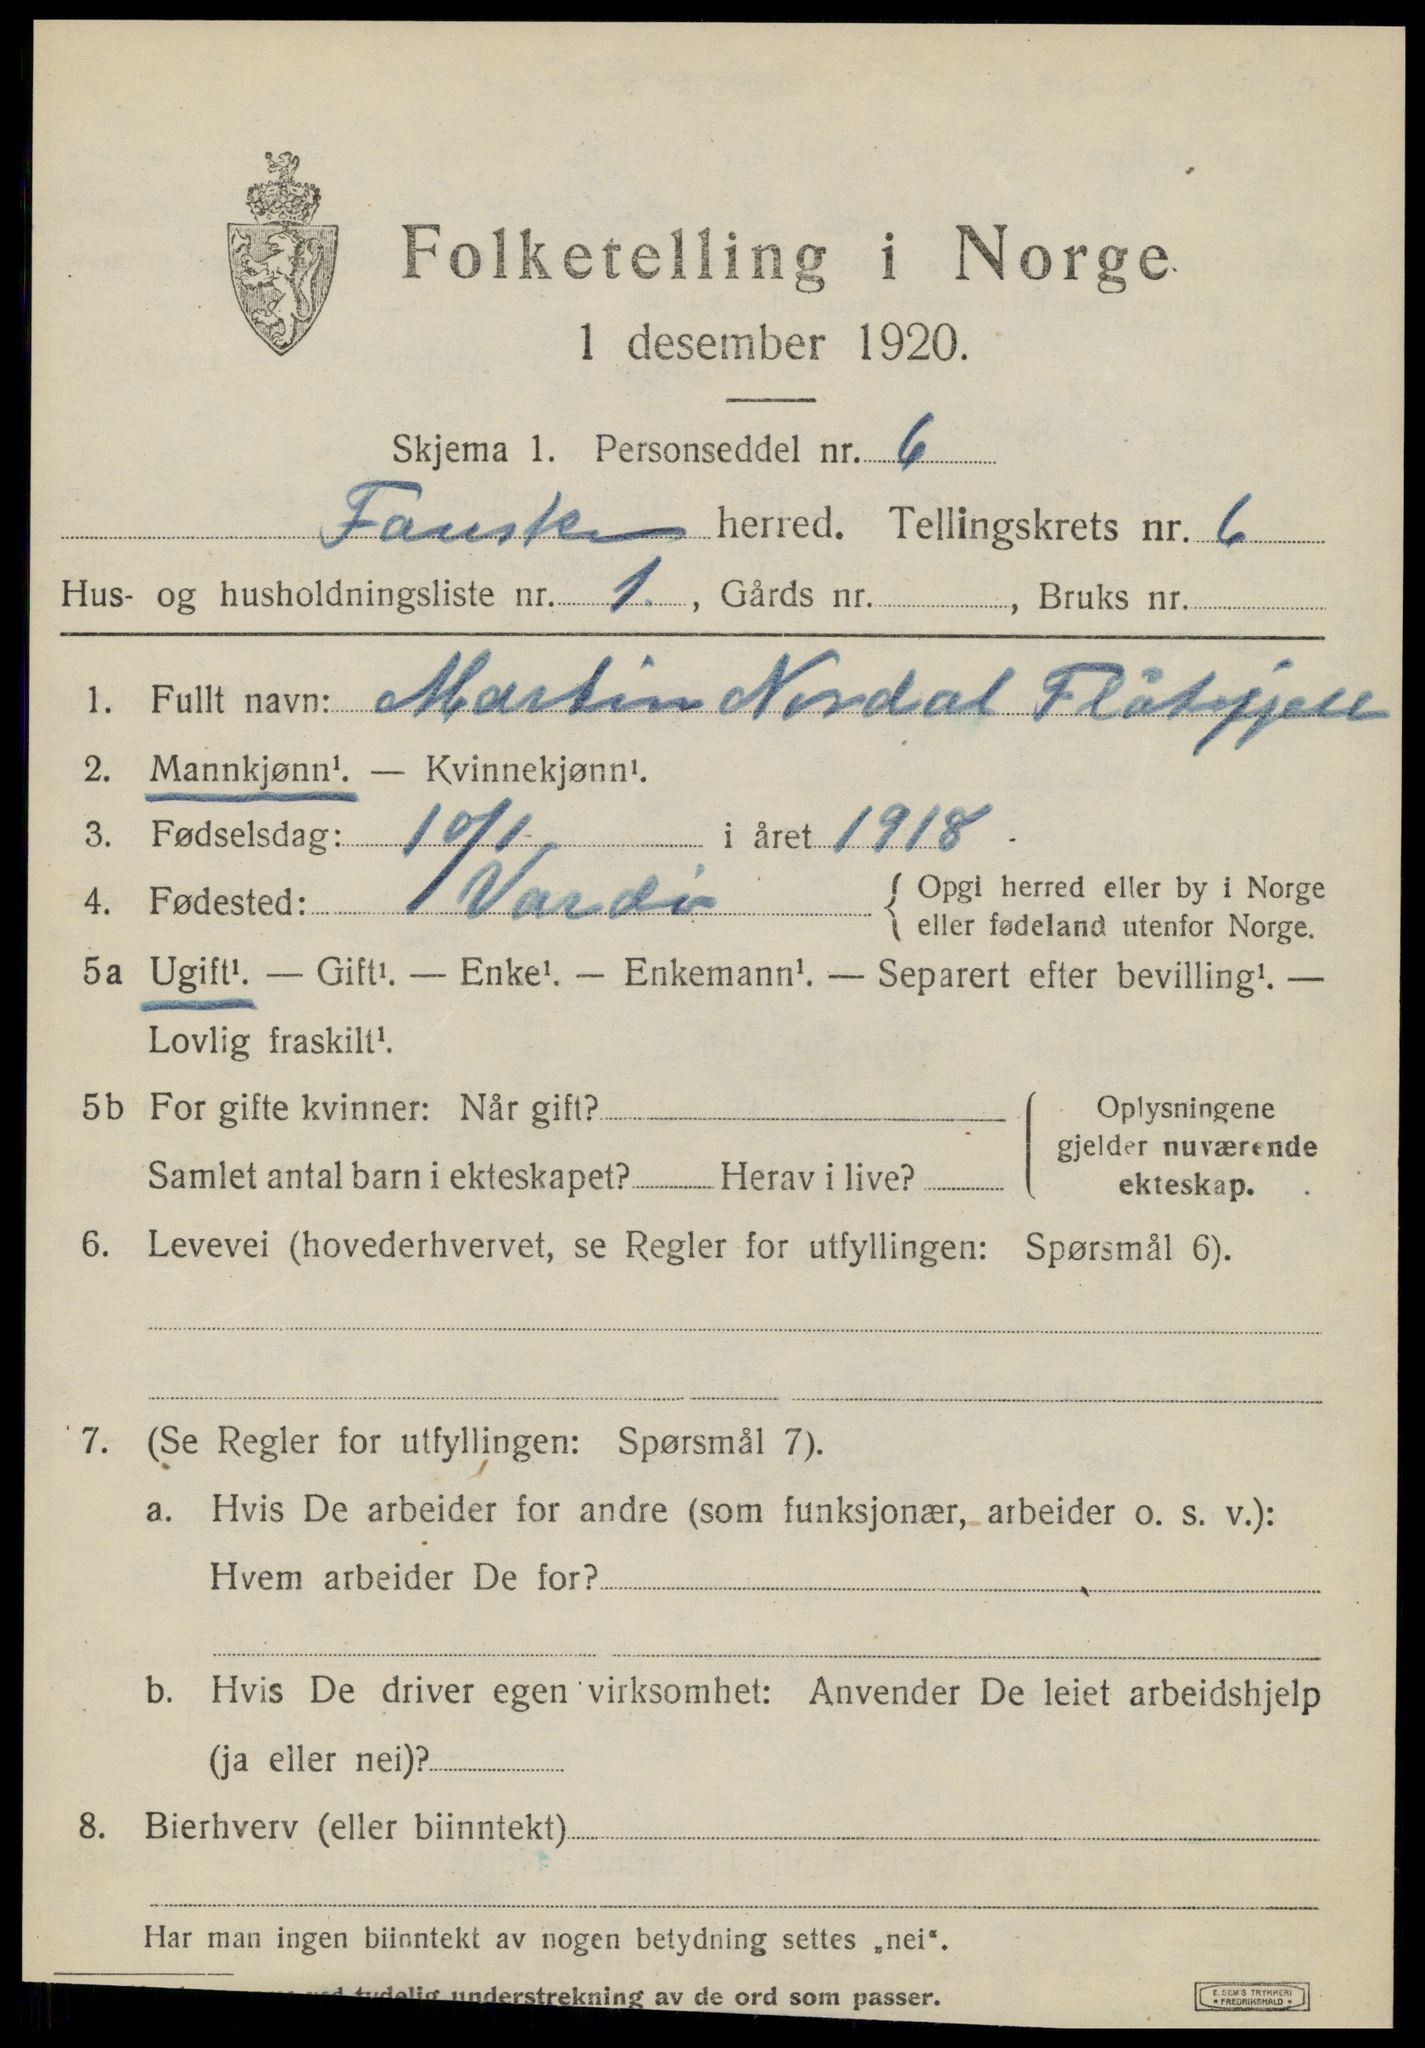 Folketelling i Norge
1 desember 1920.
Skjema 1. Personseddel nr. 6
Fauske herred. Tellingskrets nr. 6
Hus- og husholdningsliste nr. 1. , Gårds nr. , Bruks nr.
1. Fullt navn: Martin Nordal Flåtgjell
2. Mannkjønn¹. — Kvinnekjønn¹.
3. Fødselsdag: 10/1 i året 1918
4. Fødested: Vardø { Opgi herred eller by i Norge
eller fødeland utenfor Norge.
5a Ugift¹. — Gift¹. — Enke¹. — Enkemann¹. — Separert efter bevilling¹. —
Lovlig fraskilt¹.
5b For gifte kvinner: Når gift? Oplysningene
gjelder nuværende
Samlet antal barn i ekteskapet? Herav i live? ekteskap.
6. Levevei (hovederhvervet, se Regler for utfyllingen: Spørsmål 6).
7. (Se Regler for utfyllingen: Spørsmål 7).
a. Hvis De arbeider for andre (som funksjonær, arbeider o. s. v.):
Hvem arbeider De for?
b. Hvis De driver egen virksomhet: Anvender De leiet arbeidshjelp
(ja eller nei)?
8. Bierhverv (eller biinntekt)
Har man ingen biinntekt av nogen betydning settes „nei“.
ved tydelig understrekning av de ord som passer.
E. SEM'S TRYKKERI
FREDRIKSHALD